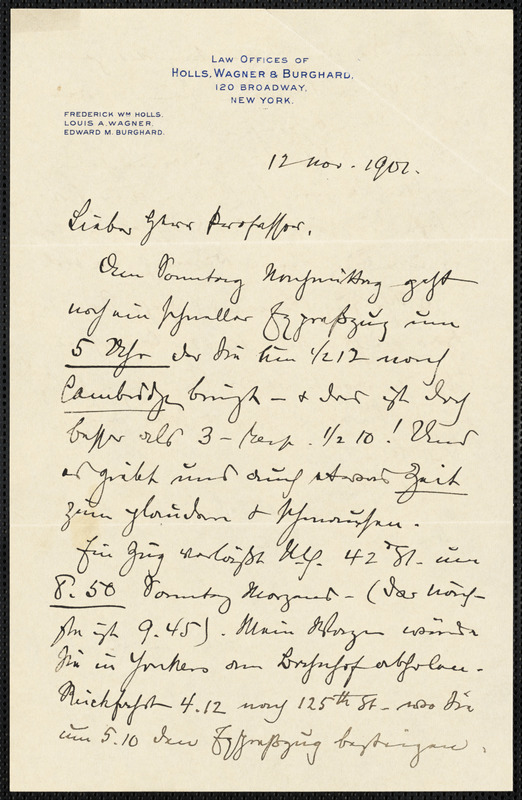 LAW OFFICES OF
HOLLS, WAGNER & BURGHARD,
120 BROADWAY,
NEW YORK.
FREDERICK WM HOLLS.
LOUIS A. WAGNER.
EDWARD M. BURGHARD.
12 Nov. 1901.
Lieber Herr Professor,
Am Sonntag Nachmittag geht
noch ein schneller Expreßzug um
5 Uhr der Sie um ½12 nach
Cambridge bringt – & das ist doch
besser als 3 – resp. ½10! Und
es giebt uns auch etwas Zeit
zum plaudern & schmauchen.
Ein Zug verläßt 42d St. um
8.50 Sonntag Morgens – (der näch-
ste ist 9.45). Mein Wagen würde
Sie in Yonkers am Bahnhof abholen.
Rückfahrt 4.12 nach 125th St – wo Sie
um 5.10 den Expreßzug besteigen.